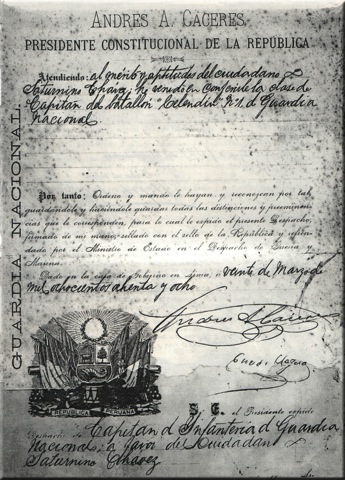 ANDRES A. CÁCERES,
PRESIDENTE CONSTITUCIONAL DE LA REPÚBLICA
Atendiendo: al mérito y aptitudes del ciudadano D
Saturnino Chavez he venido en conferirle la clase de
Capitan del batallon "Celendin" N.º 1, d Guardia
Nacional
Por tanto: Ordeno y mando le hayan y reconozcan por tal
guardándole y haciéndole guardar todas las distinciones y preeminen-
cias que le corresponden, para lo cual le expido el presente Despacho,
firmado de mi mano, sellado con el sello de la República y refren-
dado por el Ministro de Estado en el Despacho de Guerra y
Marina.
Dado en la casa de Gobierno en Lima, a veinte de Marzo de
mil ochocientos ochenta y ocho
Andres A. Cáceres
GUARDIA NACIONAL
REPÚBLICA PERUANA
S. E. el Presidente expide
Despacho de Capitan d Infanteria d Guardia
Nacional, a favor de Ciudadan
Saturnino Chavez